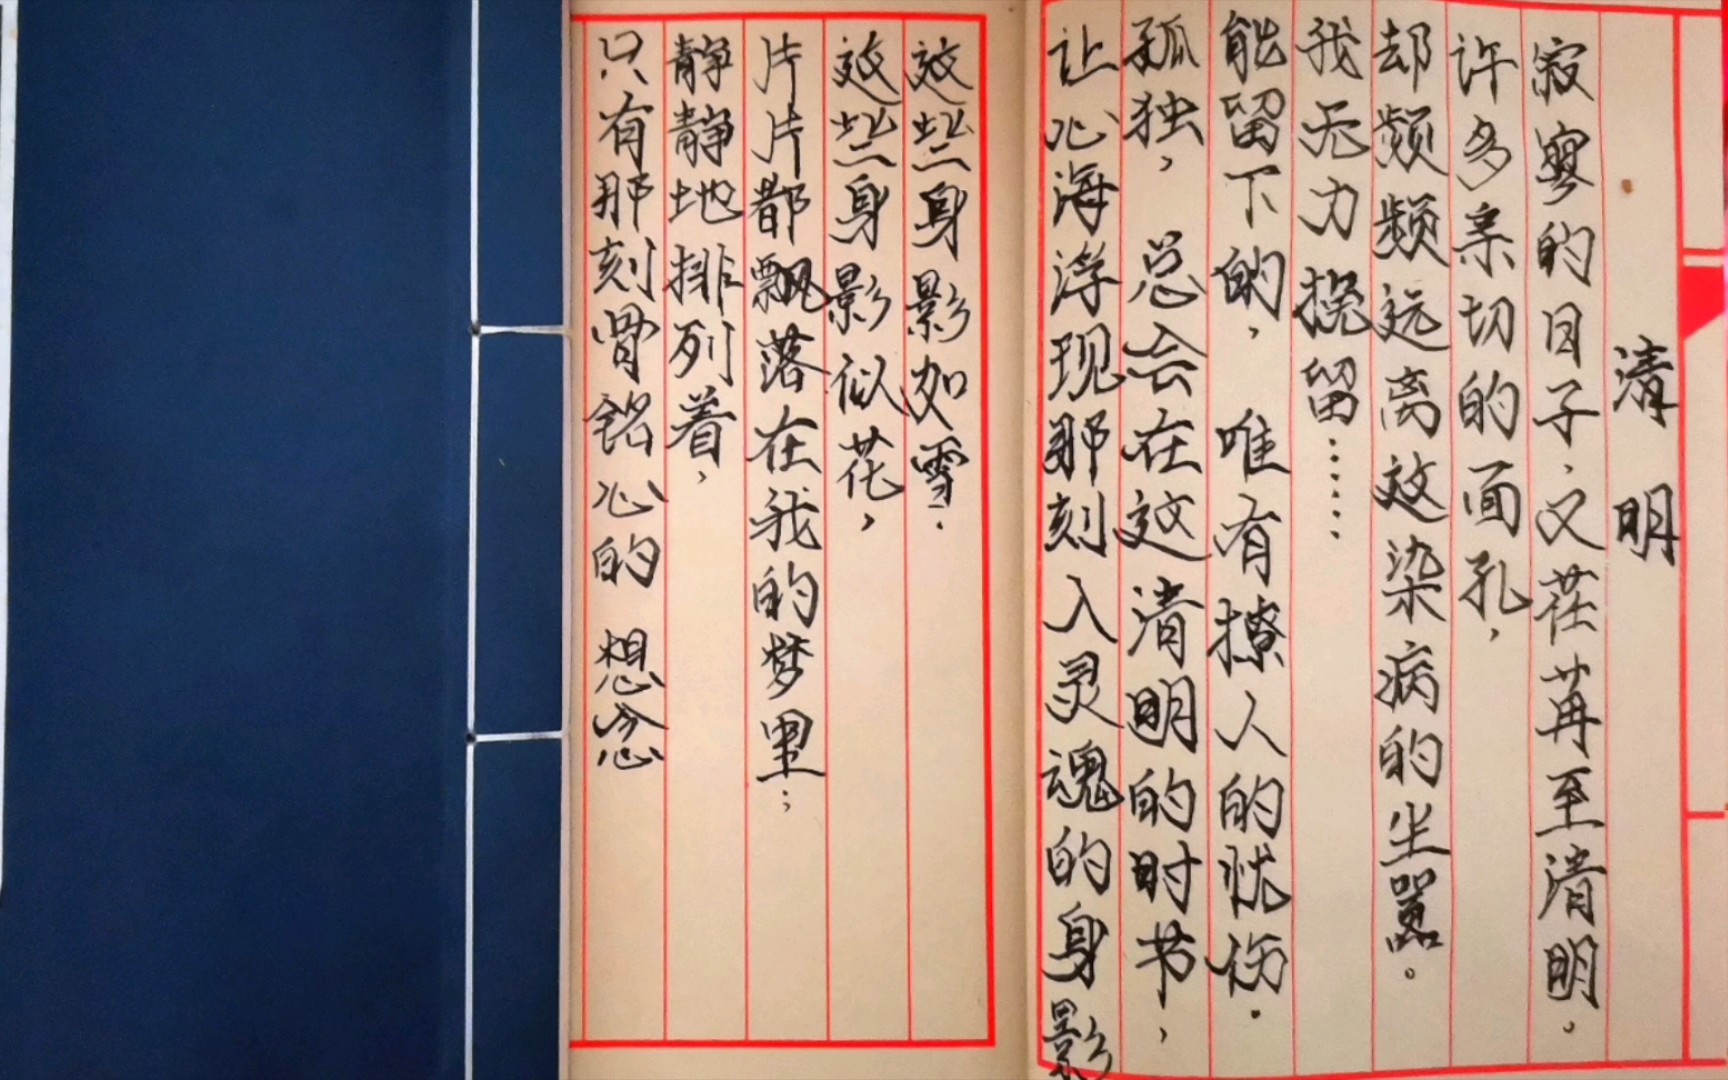 清明
寂寥的日子，又荏苒至清明。
许多亲切的面孔，
却频频远离这染病的尘嚣。
我无力挽留……
能留下的，唯有撩人的忧伤.
孤独，总会在这清明的时节，
让心海浮现那刻入灵魂的身影
这些身影如雪.
这些身影似花，
片片都飘落在我的梦里；
静静地排列着，
只有那刻骨铭心的想念